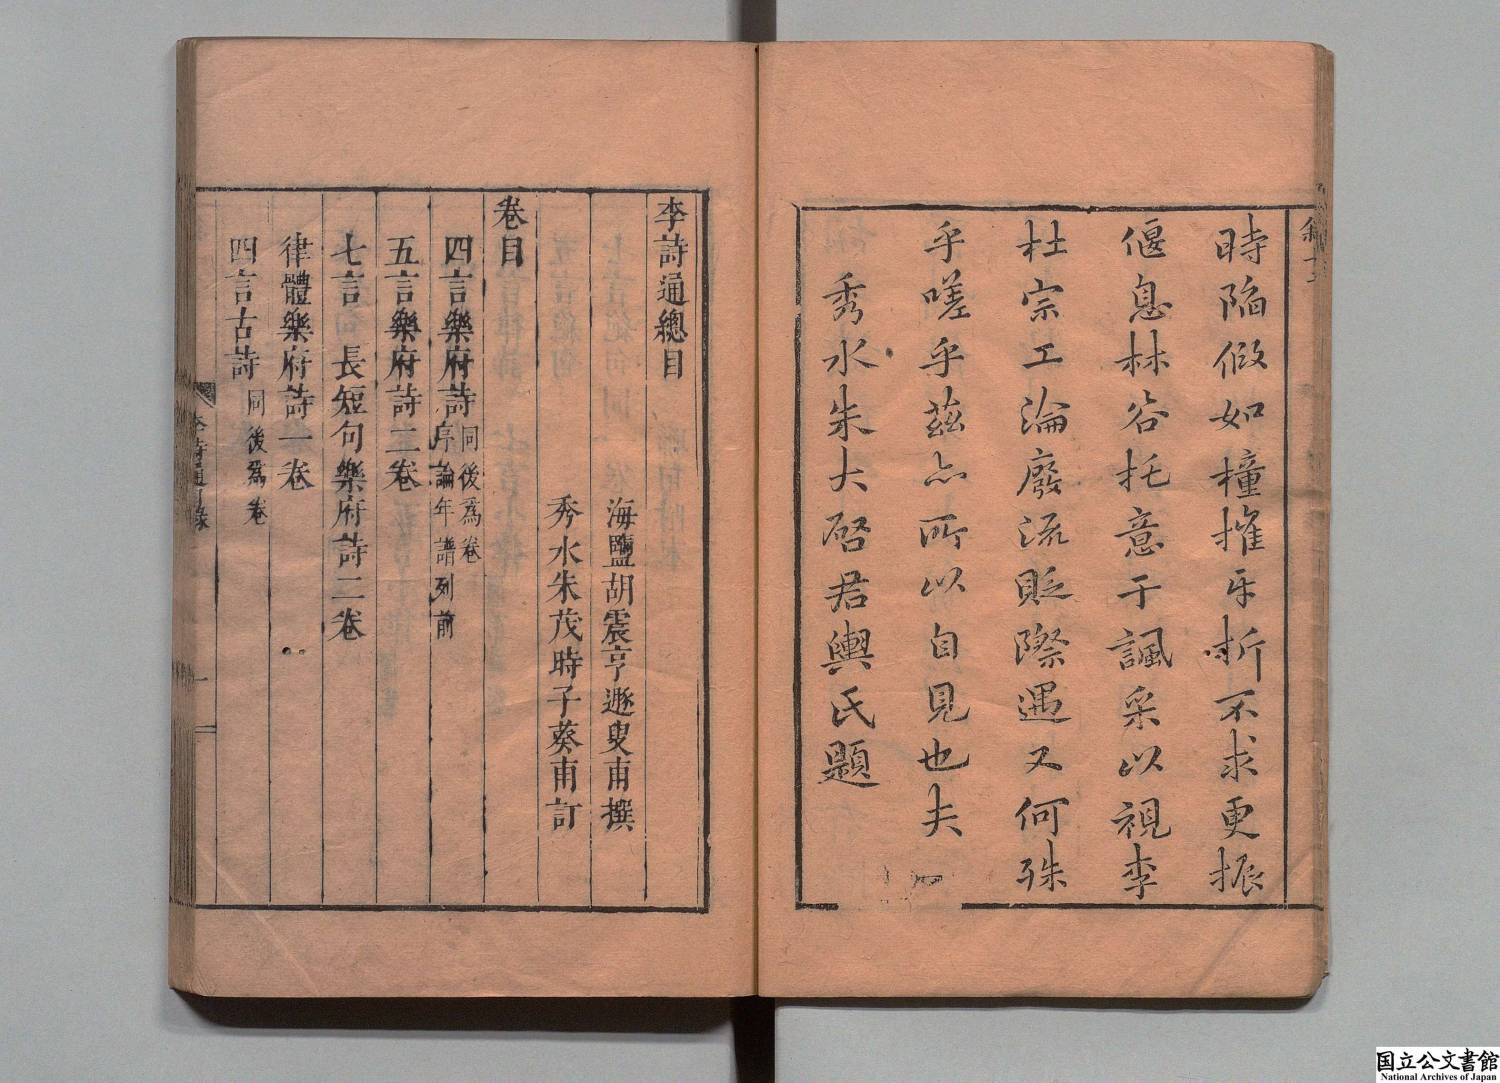 時陷假如橦摧牙折不求更振
偃息林谷托意于諷采以視李
杜宗工淪廢流貶際遇又何殊
乎嗟乎茲亦所以自見也夫
秀水朱大啓君輿氏題
李詩通總目
海鹽胡震亨遯叟甫撰
秀水朱茂時子葵甫訂
卷目
四言樂府詩同後為卷序論年譜列前
五言樂府詩三卷
七言長短句樂府詩二卷
律體樂府詩一卷
四言古詩後為卷同
李詩通目錄
一
国立公文書館
National Archives of Japan